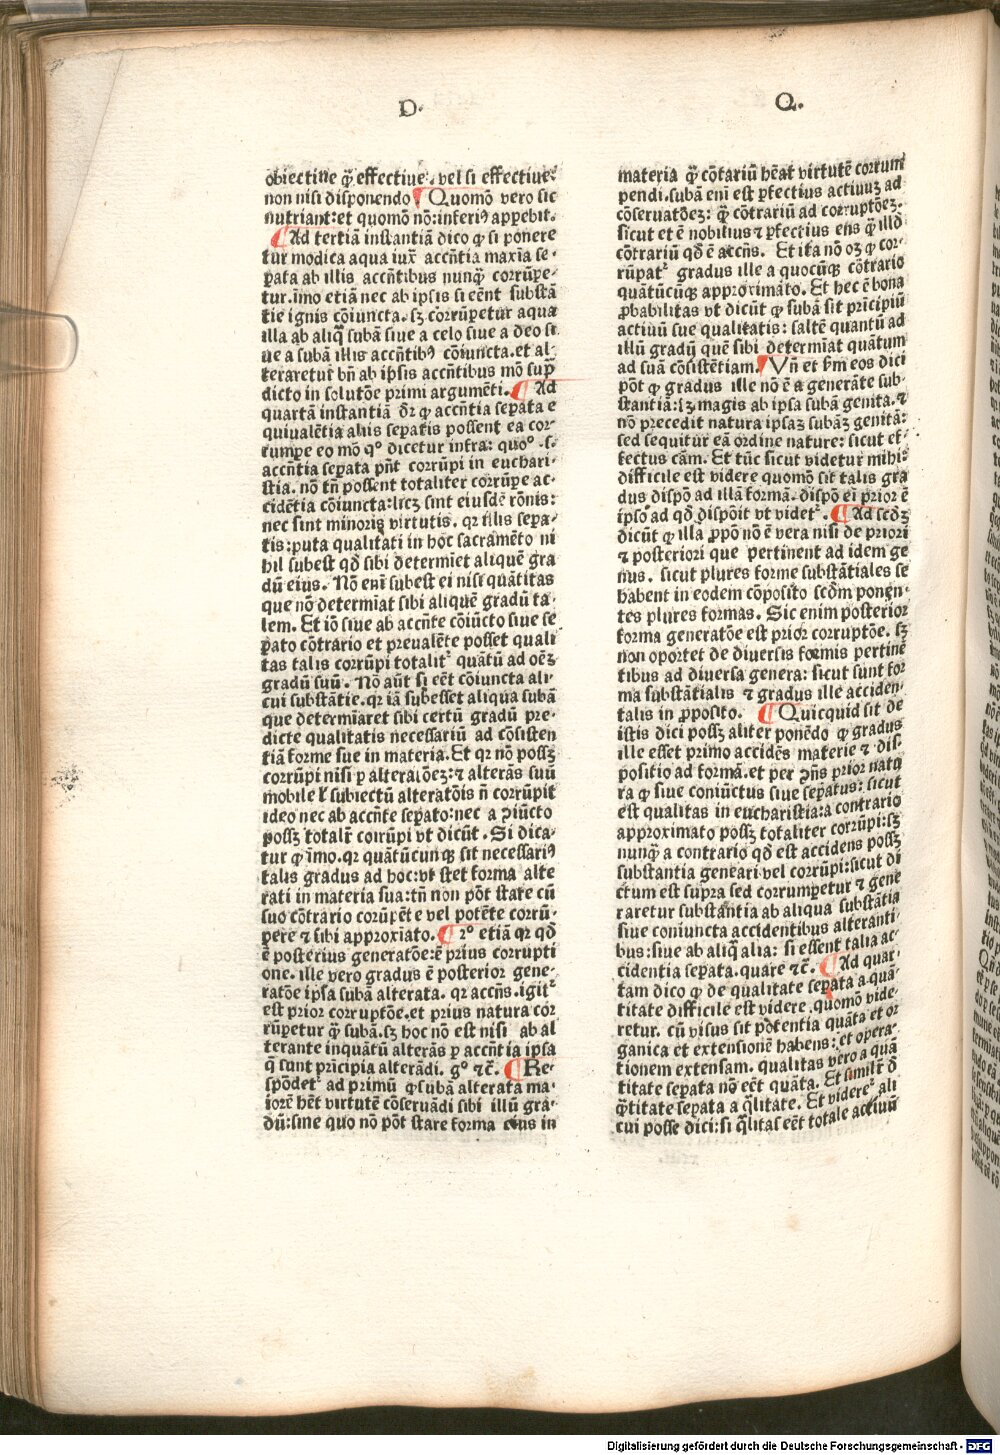 D.
Q.
obiectiue q̃ꝫ effectiue. vel si effectiue:
non nisi disponendo ¶ Quomõ vero sic
nutriant: et quomõ nõ: inferiꝰ appebit.
¶ Ad tertiã instantiã dico ꝙ si ponere
tur modica aqua iuxᷓ accñtia maxĩa se⸗
pata ab illis accñtibus nunqᷓ corrũpe⸗
tur. ĩmo etiã nec ab ipsis si eẽnt substã
tie ignis cõiuncta. sꝫ corrũpetur aqua
illa ab aliqᷓ subã siue a celo siue a deo si
ue a subã illis accñtibꝰ cõiuncta. et al⸗
teraretur bñ ab ipsis accñtibus mõ sup̃
dicto in solutõe primi argumẽti. ¶ Ad
quartã instantiã dr̃ ꝙ accñtia sepata e
quiualẽtia aliis sepatis possent ea cor⸗
rumpe eo mõ qº dicetur infra: quoº .s.
accñtia sepata pñt corrũpi in euchari⸗
stia. nõ tñ possent totaliter corrũpe ac⸗
cidẽtia cõiuncta: licꝫ sint eiusdẽ rõnis:
nec sint minoris virtutis. qr illis sepa⸗
tis: puta qualitati in hoc sacramẽto ni
hil subest qd̃ sibi determiet aliquẽ gra
dũ eius. Nõ enĩ subest ei nisi quãtitas
que nõ determĩat sibi aliquẽ gradũ ta⸗
lem. Et iõ siue ab accñte cõiũcto siue se
pato cõtrario et preualẽte posset quali
tas talis corrũpi totalitᷣ quãtũ ad oẽꝫ
gradũ suũ. Nõ aũt si eẽt cõiuncta ali⸗
cui substãtie. qr iã subesset aliqua subã
que determĩaret sibi certũ gradũ pre⸗
dicte qualitatis necessariũ ad cõsisten
tiã forme sue in materia. Et qr nõ possꝫ
corrũpi nisi ꝑ alteratõeꝫ: ⁊ alterãs suũ
mobile ł subiectũ alteratõis ñ corrũpit
ideo nec ab accñte sepato: nec a ꝯiũcto
possꝫ totalr̃ corrũpi vt dicũt. Si dica⸗
tur ꝙ ĩmo. qr quãtũcunqꝫ sit necessariꝰ
talis gradus ad hoc: vt stet forma alte
rati in materia sua: tñ non põt stare cũ
suo cõtrario corũpẽte vel potẽte corrũ⸗
pere ⁊ sibi approxĩato. ¶ 2º etiã qr qd̃
ẽ posterius generatõe: ẽ prius corrupti
one. ille vero gradus ẽ posterior gene⸗
ratõe ipsa subã alterata. qr accñs. igitᷣ
est prior corruptõe. et prius natura cor
rũpetur qᷓ subã. sꝫ hoc nõ est nisi ab al
terante inquãtũ alterãs ꝑ accñtia ipsa
q̃ sunt pricipia alterãdi. gº ⁊c̃. ¶ Re⸗
spõdetᷣ ad primũ ꝙ subã alterata ma⸗
iorẽ hẽt virtutẽ cõseruãdi sibi illũ gra⸗
dũ: sine quo nõ põt stare forma eius in
materia qᷓ cõtariũ hẽat virtutẽ corrum
pendi. subã enĩ est ꝑfectius actiuuꝫ ad
cõseruatõeꝫ: qᷓ cõtrariũ ad corruptõeꝫ.
sicut et ẽ nobilius ⁊ ꝑfectius ens qᷓ illd̃
cõtrariũ qd̃ ẽ accñs. Et ita nõ oꝫ ꝙ cor⸗
rũpatᷣ gradus ille a quocũqꝫ cõtrario
quãtũcũqꝫ approximãto. Et hec ẽ bona
ꝓbabilitas vt dicũt ꝙ subã sit pricipiũ
actiuũ sue qualitatis: saltẽ quantũ ad
illũ gradũ quẽ sibi determĩat quãtum
ad suã cõsistẽtiam. ¶ Vñ et ẜm eos dici
põt ꝙ gradus ille nõ ẽ a generãte sub⸗
stantiã: sꝫ magis ab ipsa subã genita. ⁊
nõ precedit natura ipsaꝫ subãꝫ genitã:
sed sequitur eã ordine nature: sicut ef⸗
fectus cãm. Et tũc sicut videtur mihi:
difficile est videre quomõ sit talis gra
dus dispõ ad illã formã. dispõ eĩ prior ẽ
ipso ad qd̃ dispõit vt videtᷣ. ¶ Ad scd̃ꝫ
dicũt ꝙ illa ꝓpõ nõ ẽ vera nisi de priori
⁊ posteriori que pertinent ad idem ge
nus. sicut plures forme substãtiales se
habent in eodem cõposito scd̃m ponen⸗
tes plures formas. Sic enim posterior
forma generatõe est prior corruptõe. sꝫ
non oportet de diuersis formis pertinẽ
tibus ad diuersa genera: sicut sunt for
ma substãtialis ⁊ gradus ille acciden⸗
talis in ꝓposito. ¶ Quicquid sit de
istis dici possꝫ aliter ponẽdo ꝙ gradus
ille esset primo accidẽs materie ⁊ dis⸗
positio ad formã. et per ꝯñs prior natu
ra ꝙ siue coniũctus siue sepatus: sicut
est qualitas in eucharistia: a contrario
approximato possꝫ totaliter corrũpi: sꝫ
nunqᷓ a contrario qd̃ est accidens possꝫ
substantia geneari vel corrũpi: sicut di
ctum est supra sed corrumpetur ⁊ gene
raretur substantia ab aliqua substãtia
siue coniuncta accidentibus alteranti⸗
bus: siue ab aliqᷓ alia: si essent talia ac⸗
cidentia sepata. quare ⁊c̃. ¶ Ad quar⸗
tam dico ꝙ de qualitate sepata a quã⸗
titate difficile est videre. quomõ vide⸗
retur. cũ visus sit potentia quãta et or
ganica et extensionẽ habens: et opera⸗
tionem extensam. qualitas vero a quã
titate sepata nõ eẽt quãta. Et similr̃ ð
q̃titate sepata a q̃litate. Et videreᷣ ali
cui posse dici: si q̃litas eẽt totale actiuũ
Digitalisierung gefördert durch die Deutsche Forschungsgemeinschaft - DFG